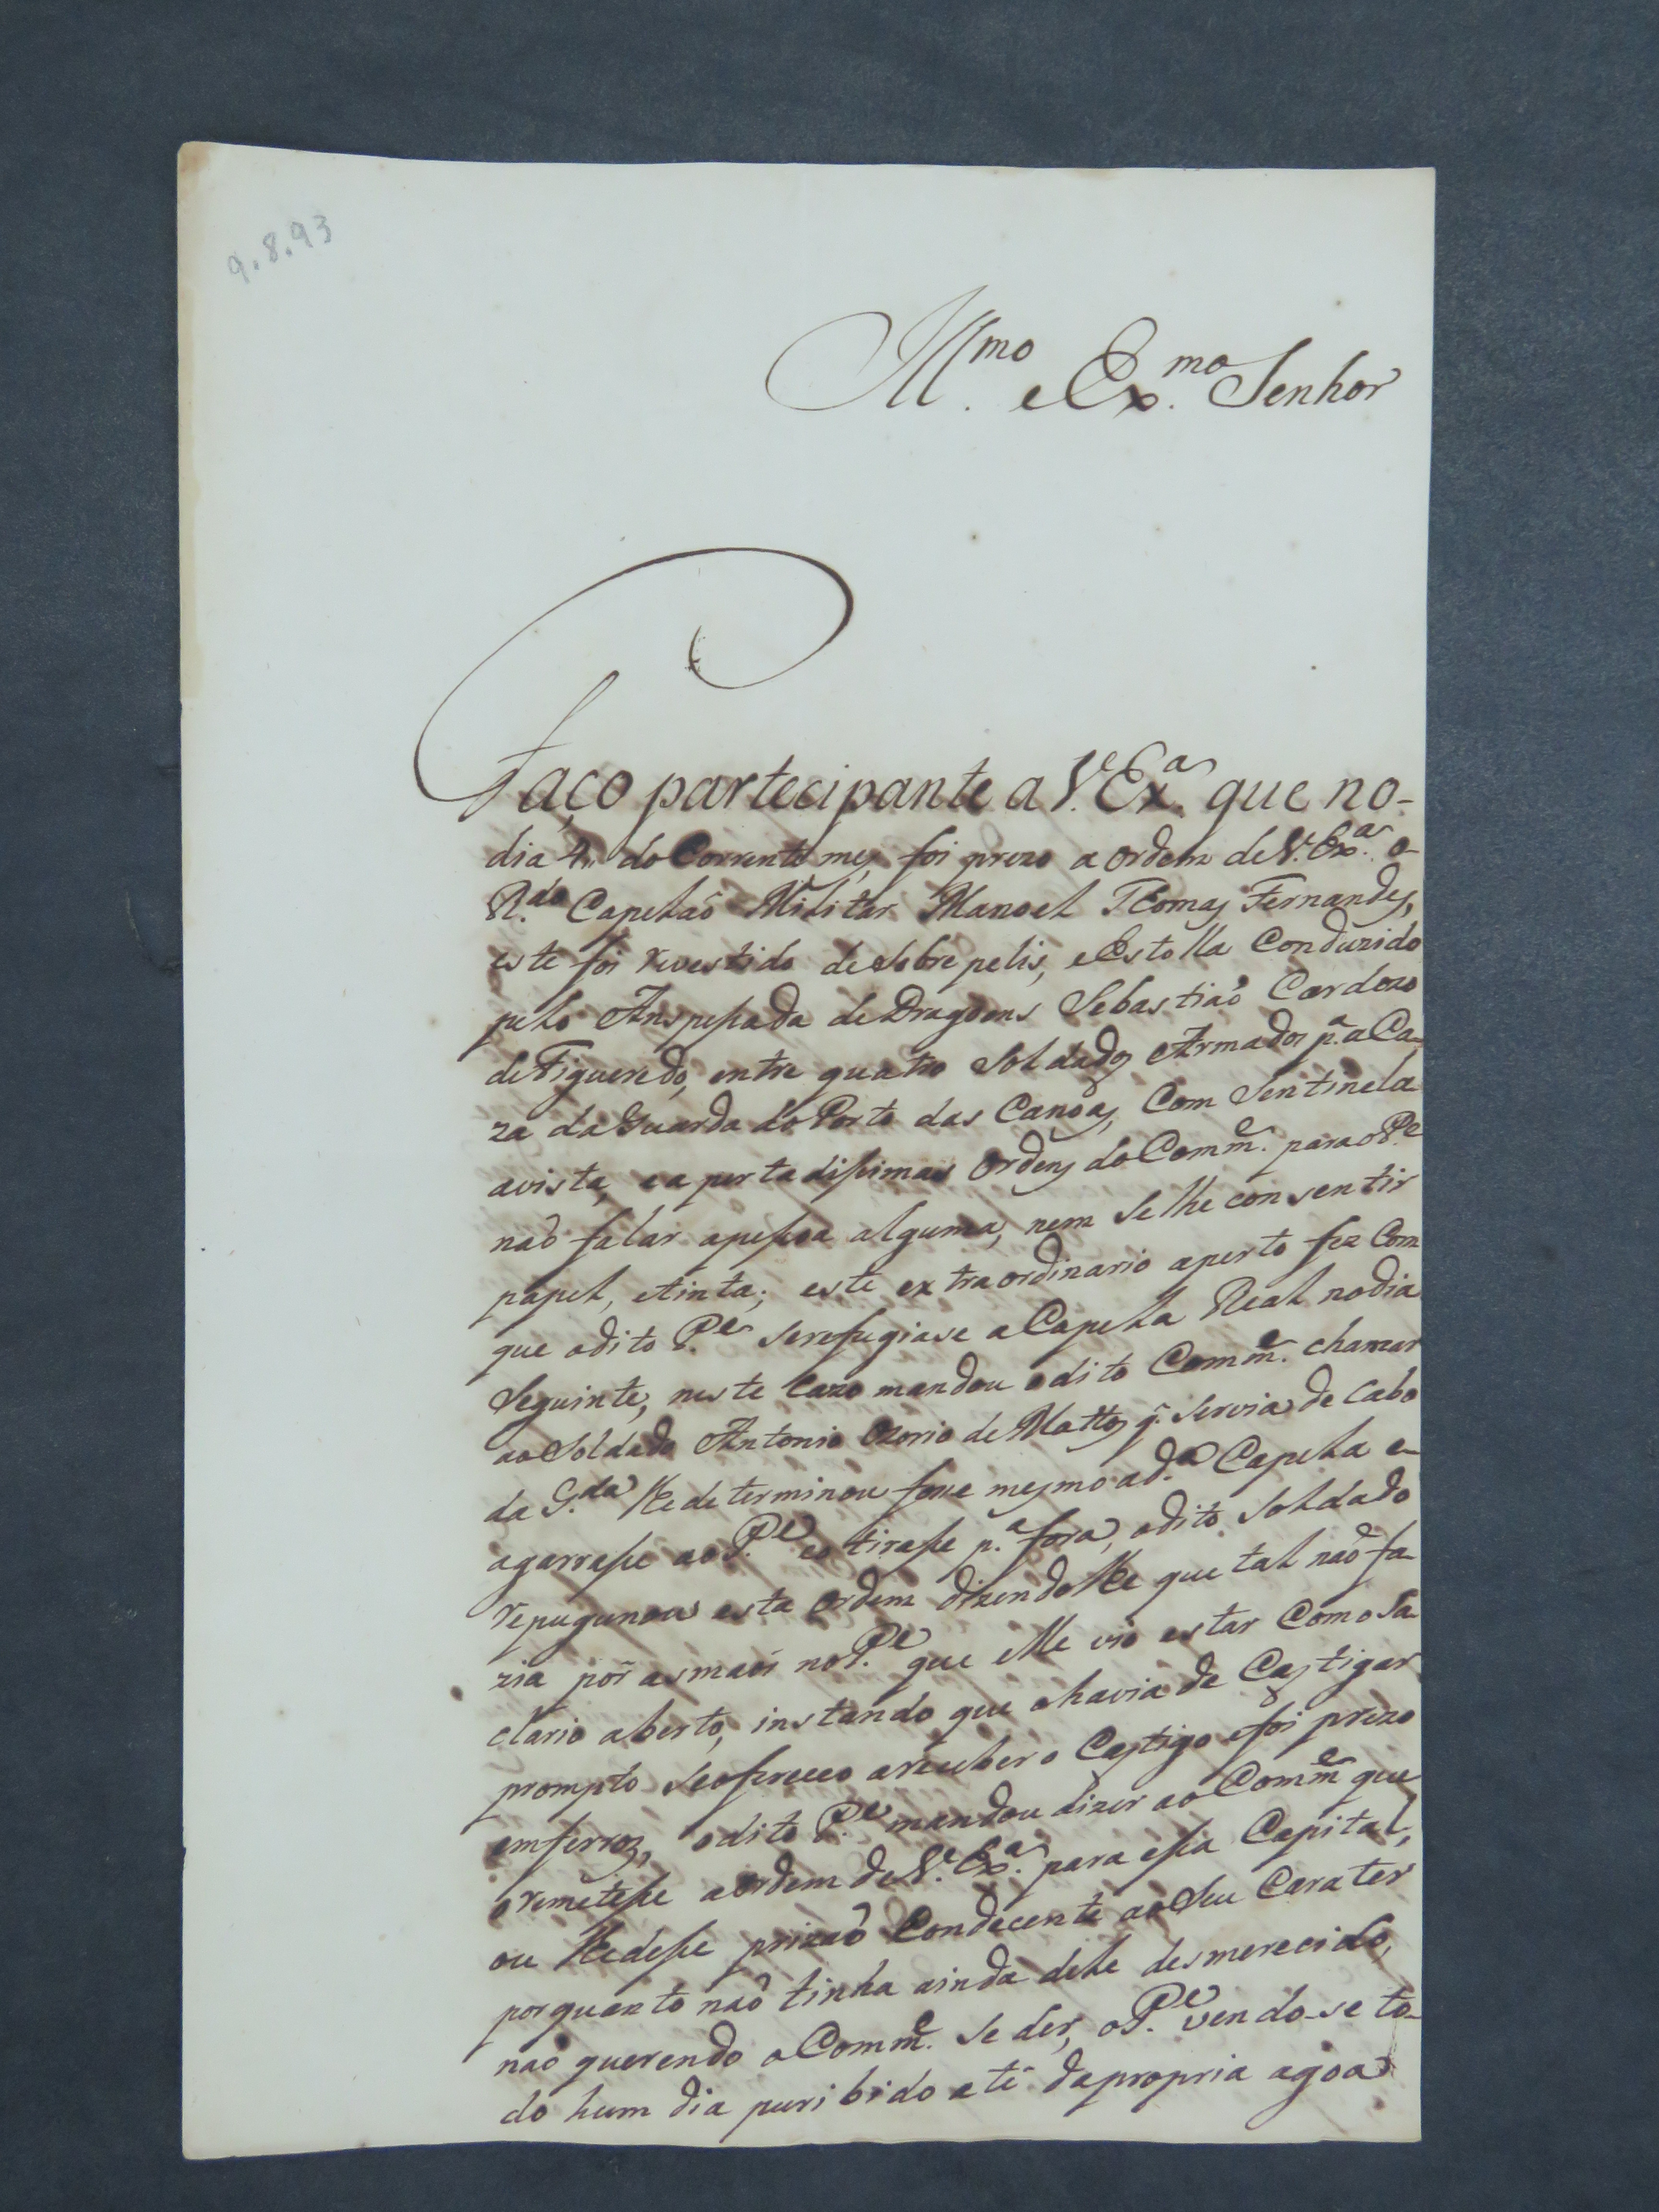 9.8.93
Ill.mo e Ex.mo Senhor
Faço partecipante a V.Ex.a que no-
dia 4,, do Corrente mez, foi prezo a ordem de V. Ex.a o
R.do Capelaõ Militar Manoel Thomaz Fernandez,
este foi revestido de Sobrepelis, e Estolla Conduzido
pelo Anspesada de Dragoens Sebastiaõ Cardozo
de Figueredo, entre quatro Soldados Armados p.a a Ca-
za da Guarda do Porto das Canoas, Com Sentinela
avista, e apertadissimas Ordens do Comm.e para o P.e
naõ falar apessoa alguma, nem Selhe consentir
papel, etinta; este extraordinario aperto fez Com
que odito P.e serefugiase a Capela Real nodia
Seguinte, neste Cazo mandou odito Comm.e chamar
ao Soldado Antonio Ozorio de Mattos q. Servia de Cabo
da G.da lhe determinou fosse mesmo ad.a Capela e-
agarrasse ao P.e eo tirasse p.a fora, odito Soldado
repugunou esta Ordem dizendolhe que tal naõ fa-
zia pôr asmaõs no P.e que elle vio estar Como Sa-
clario aberto, instando que ohavia de Castigar
prompto Seofereceo areceber o Castigo efoi prezo
emferros, odito P.e mandou dizer ao Comm.e que
oremetesse aordem de V. Ex.a para essa Capital,
ou lhedesse prizaõ Condecente aoSeu Carater
porquanto naõ tinha ainda dele desmerecido,
nao querendo o Comm.e Seder, o P.e vendo-se to-
do hum dia puribido até dapropria agoa